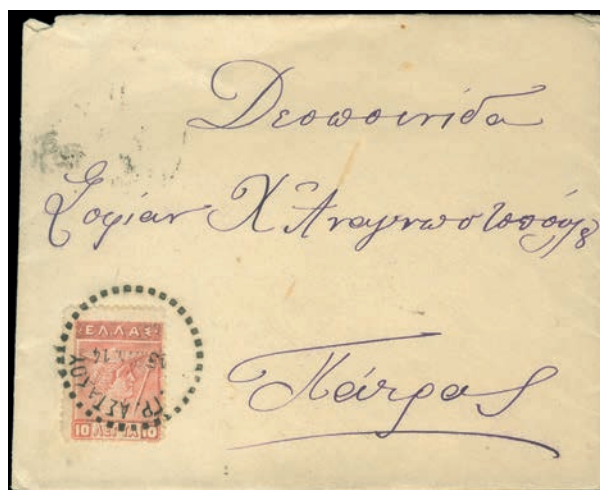 Δεσποινίδα
Σοφίαν Χ Αναγνωστοπούλου
Πάτρας
ΕΛΛΑΣ
14
ΓΡ. ΑΣΤΑΚΟΥ
10 ΛΕΠΤΑ 10